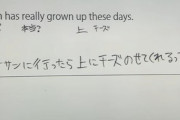 has really grown up these days.
本当? 上 チーズ
サンに行ったら上にチーズのせてくれるっ